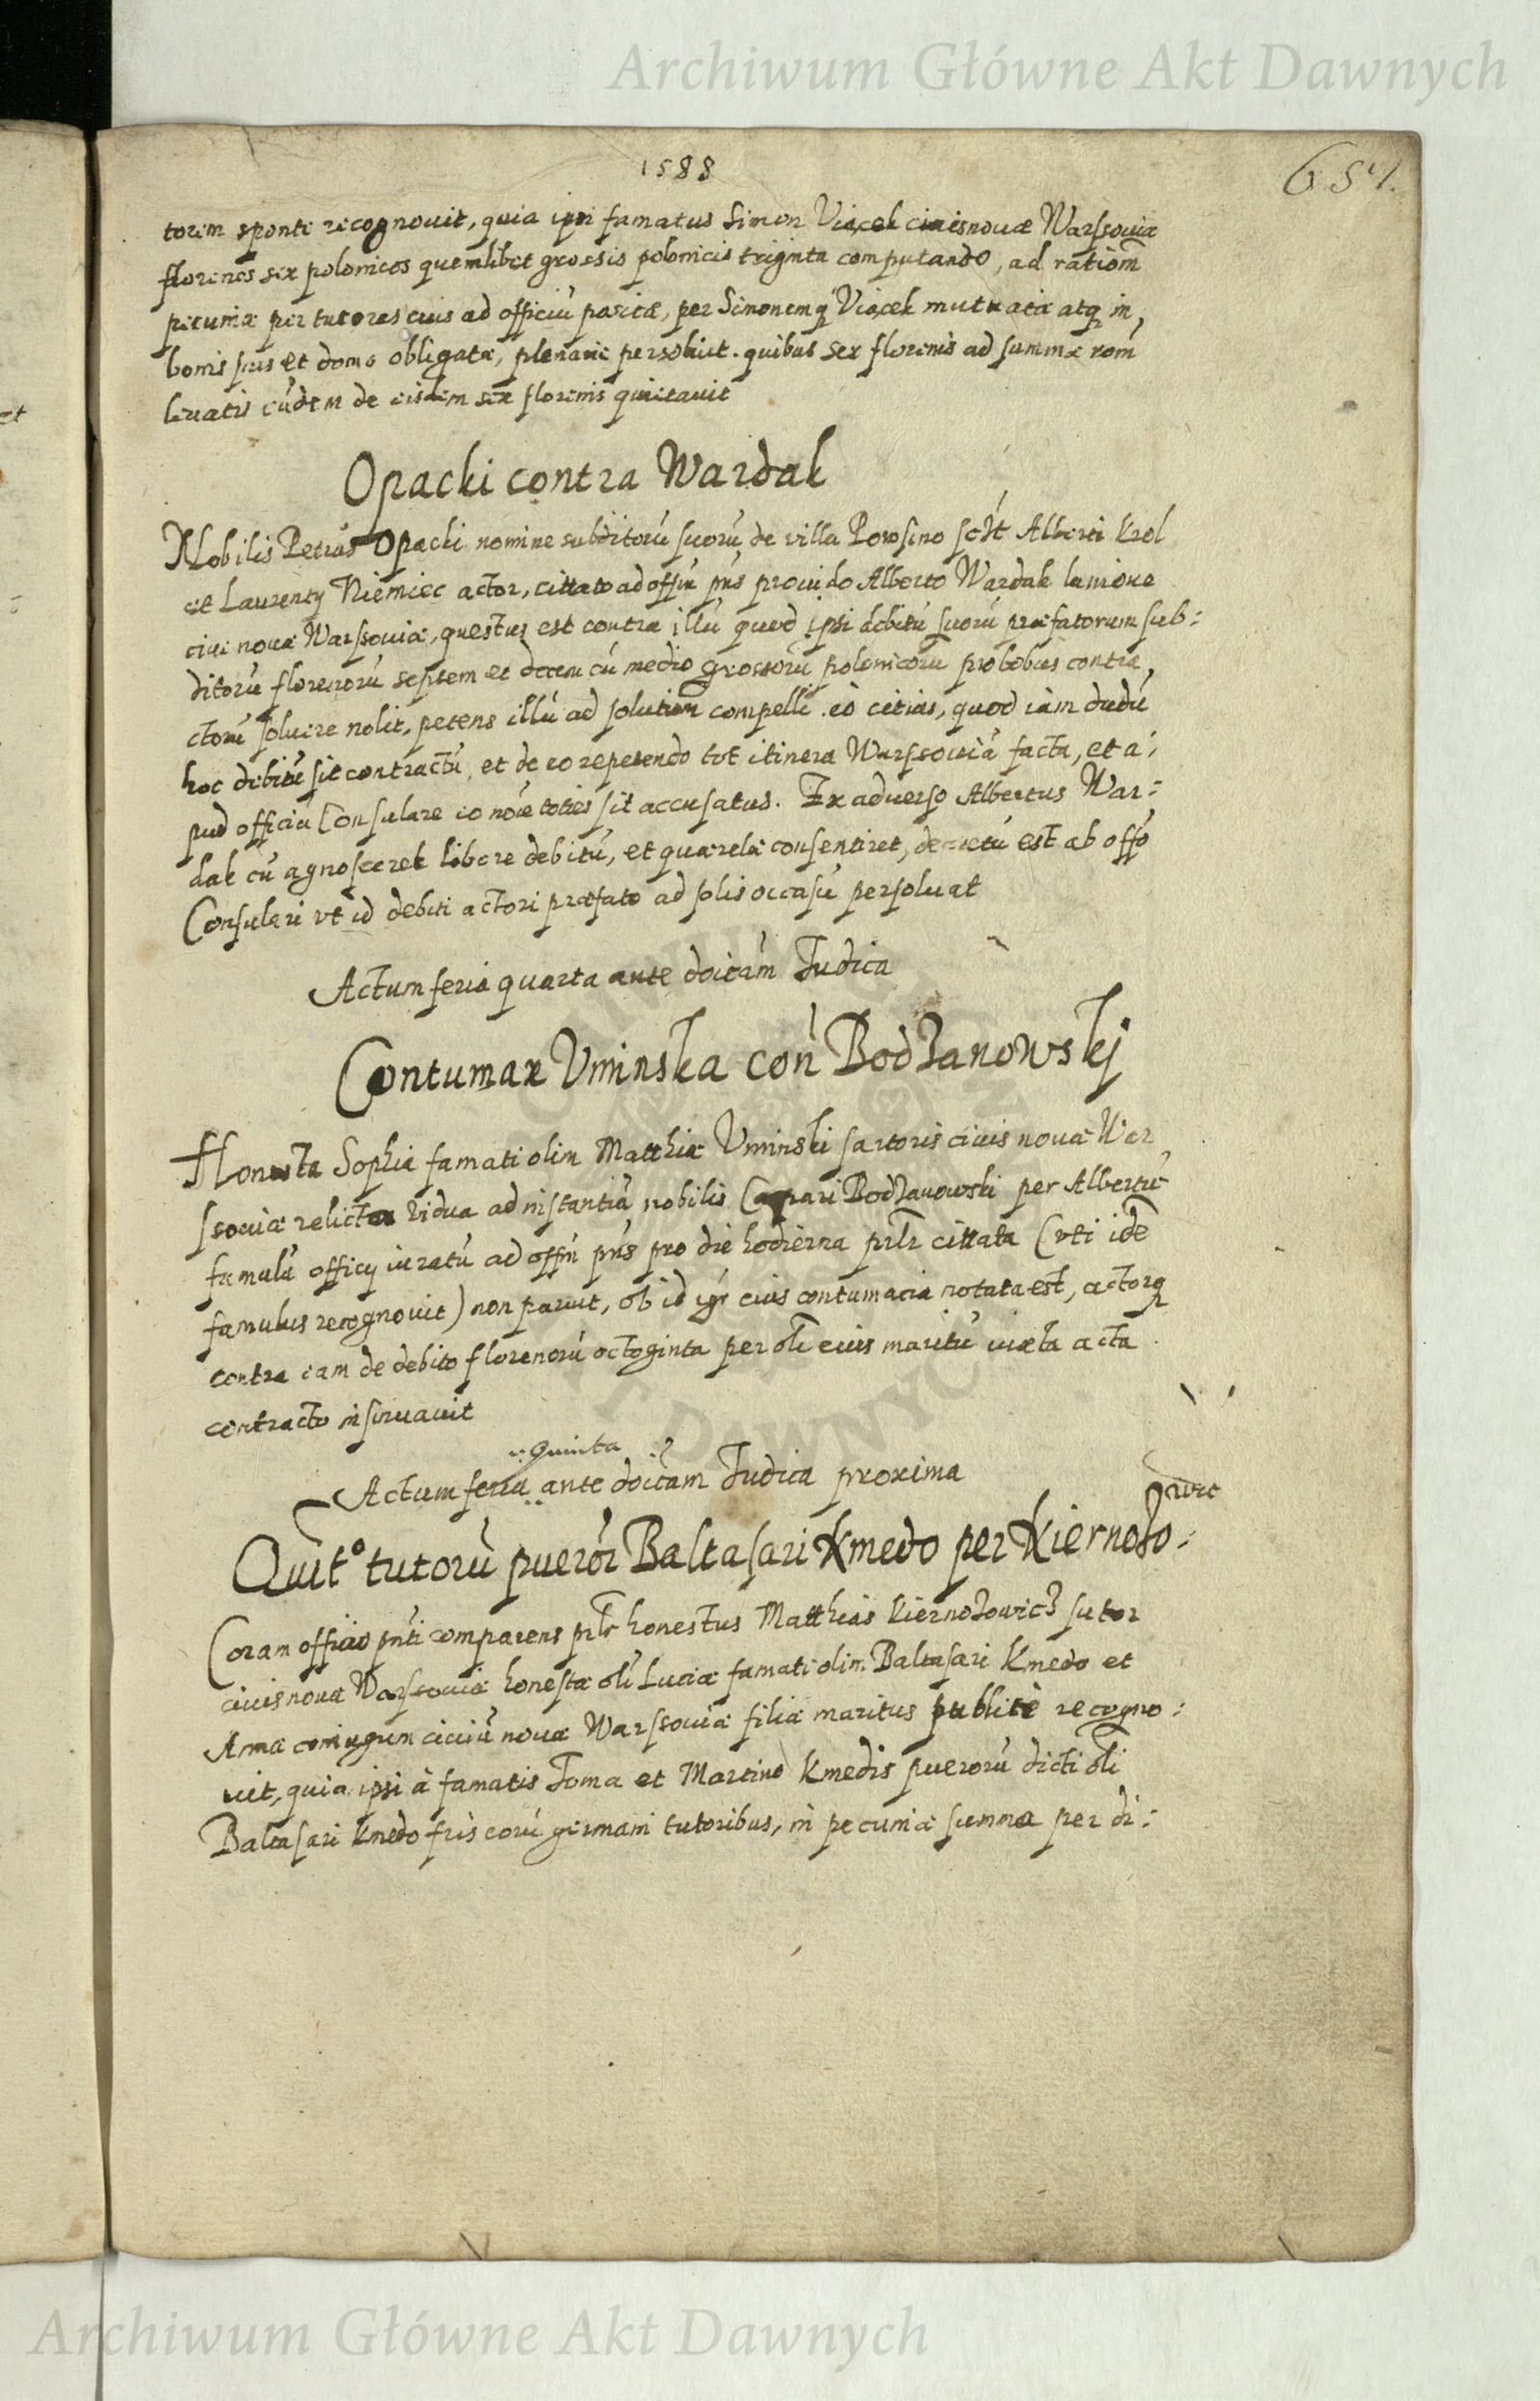 Archiwum Główne Akt Dawnych
1588
654.
torem sponte recognouit, quia ipsi famatus Simon Viącek ciuis nouæ Warssouiæ
florenos sex polonicos quemlibet grossis polonicis triginta computando, ad ratiom̄
pecuniæ per tutores eius ad officiū positæ, per Simonemq Viącek mutuatæ atq in,
bonis suis et domo obligatæ, plenarie persoluit. quibus sex florenis ad summæ rom̄
leuatis eūdem de eisdem sex florenis quietauit
Opacki contra Wardak
Nobilis Petrus Opacki nomine subditorū suorū de villa Powsino sclt Alberti Krol
et Laurenty Niemiec actor, cittato ad offm pns prouido Alberto Wardak lanione
ciui nouæ Warssouiæ, questus est contra illū quod ipsi debitū suorū præfatorum sub:
ditorū florenorū septem et decem cū medio grossorū polonicorū pro bobus contra,
ctorū soluere nolit, petens illū ad solutiom compelli. eò citius, quod iàm dudū
hoc debitū sit contractū, et de eo repetendo tot itinera Warssouiā facta, et a:
pud officiū Consulare eo noīe toties sit accusatus. Ex aduerso Albertus War:
dak cū agnosceret libere debitū, et quærelæ consentiret, decretū est ab offo
Consulari vt id debiti actori præfato ad solis occasū persoluat
Actum feria quarta ante doicām Iudica
Contumax Vminska con Bodzanowskj
Honesta Sophia famati olim Matthiæ Vminski sartoris ciuis nouæ War
ssouiæ relicta vidua ad instantiā nobilis Caspari Bodzanowski per Albertū
famulū officy iuratū ad offm pns pro die hodierna prlr cittata (vti idē
famulus recognouit) non paruit, ob id igr eius contumacia notata est, actorq
contra eam de debito florenorū octoginta per olī eius maritū iuxta acta
contracto inseruauit
quinta
Actum feria ante doicām Iudica proxima
Quit° tutorū pueror Baltasari Kmedo per Kiernozo:
wic
Coram officio pnti comparens prlr honestus Matthias Kiernozowicz sutor
ciuis nouæ Warssouiæ honestæ olī Luciæ famati olim Baltasari Kmedo et
Annæ coniugum ciuiū nouæ Warssouiæ filiæ maritus publicè recogno:
uit, quia ipsi à famatis Toma et Martino Kmedis puerorū dicti olī
Baltasari Kmedo fris eorū germani tutoribus, in pecuniæ summa per di:
Archiwum Główne Akt Dawnych